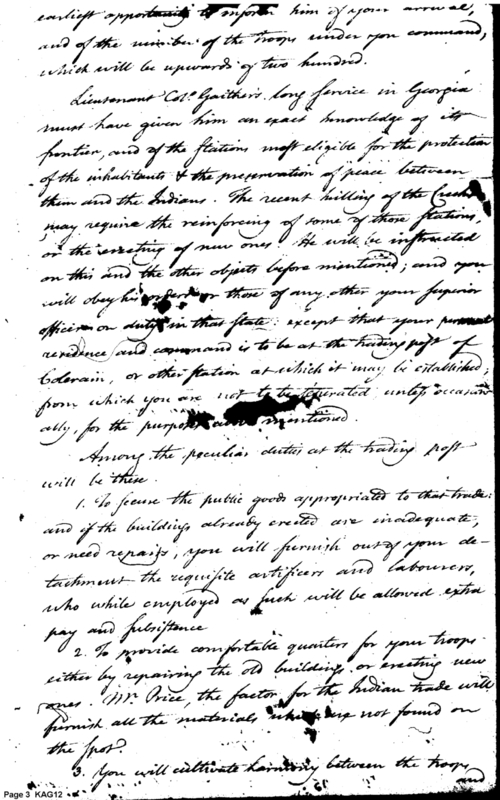 earliest opportunity to inform him of your arrival,
and of the number of the troops under your command,
which will be upwards of two hundred.
Lieutenant Colo. Gaithers long service in Georgia
must have given him an exact knowledge of its
frontier, and of the stations most eligible for the protection
of the inhabitants & the preservation of peace between
them and the Indians. The recent killing of the Creeks
may require the reinforcing of some of those stations,
or the erecting of new ones. He will be instructed
on this and the other objects before mentioned; and you
will obey his orders or those of any other your superior
officer on duty in that State: except that your personal
residence and command is to be at the trading post of
Colerain, or other station at which it may be established;
from which you are not to be separated unless occasion
ally, for the purposes mentioned.
Among the peculiar duties at the trading post
will be these.
1. To secure the public goods appropriated to that trade:
and if the buildings already erected are inadequate,
or need repairs, you will furnish out of your de-
tachment the requisite artificers and labourers,
who while employed as such will be allowed extra
pay and subsistence
2. To provide comfortable quarters for your troops
either by repairing the old buildings or erecting new
ones. Mr. Price, the factor for the Indian trade will
furnish all the materials which are not found on
the spot.
3. You will cultivate harmony between the troops
and
Page 3 KAG12